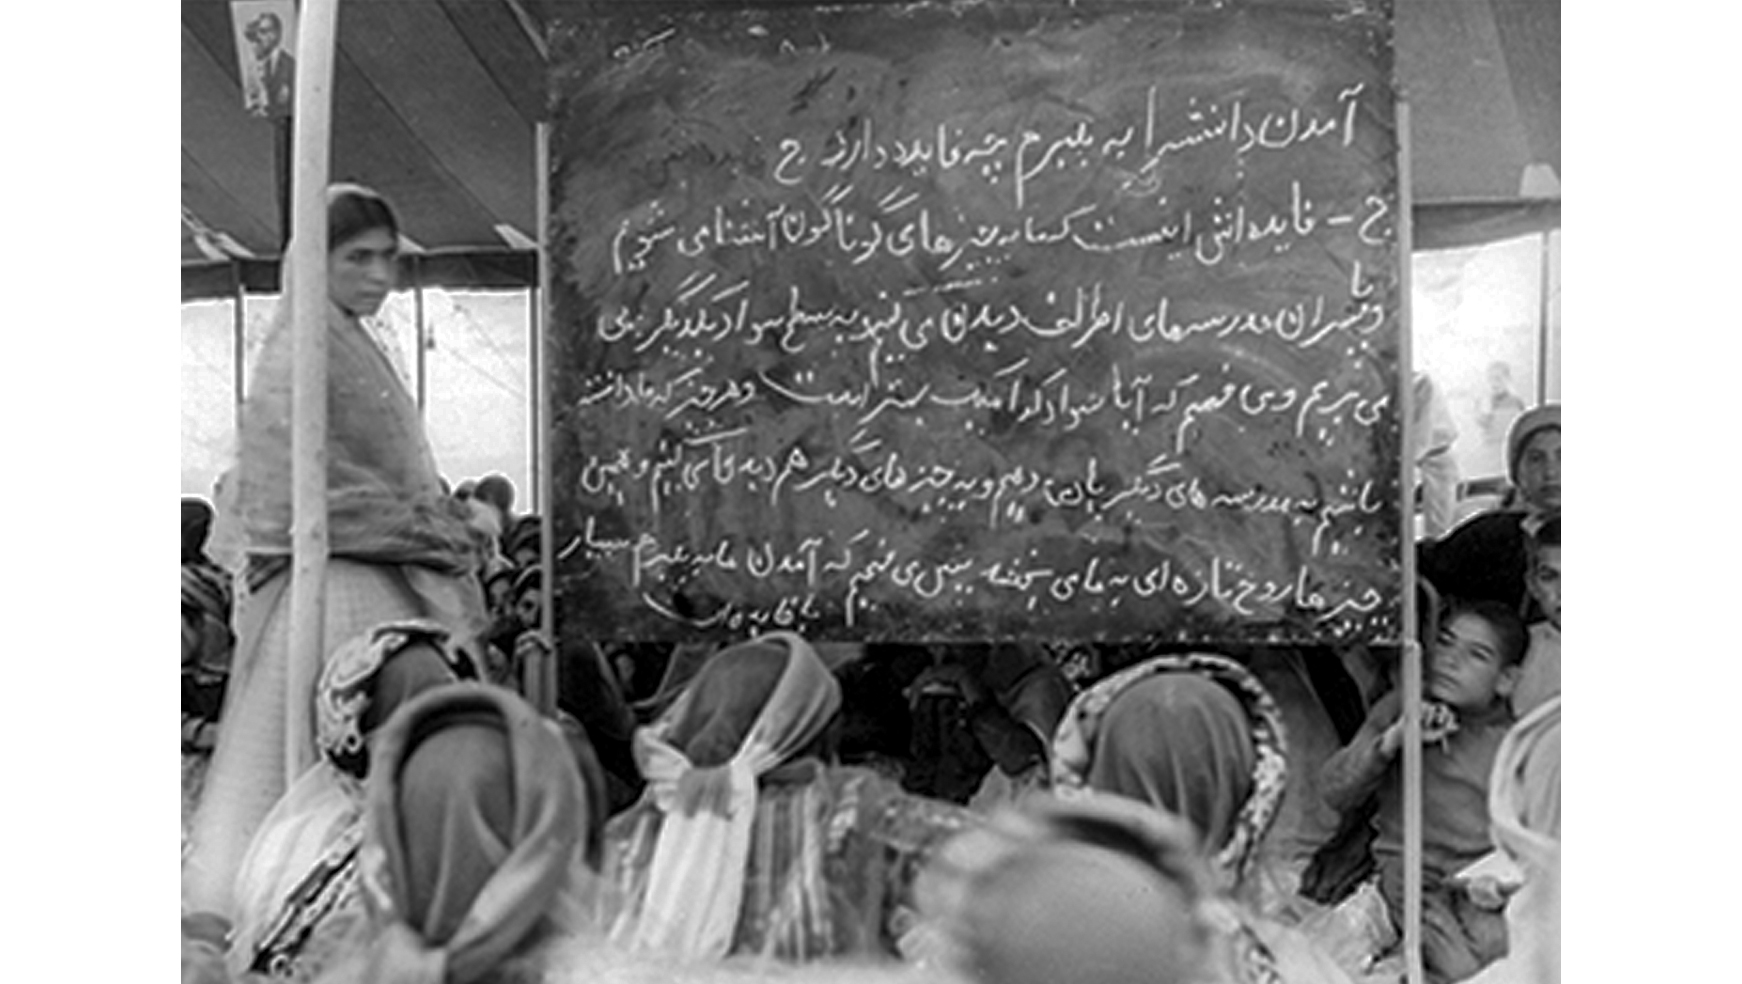 آمدن دانشسرا به بلبرم چه فایده دارد ج
ج - فایده اش اینست که ما به چیزهای گوناگون آشنا می شویم
و با پسران مدرسه های اطراف دیدن می کنیم و به سطح سواد یکدیگر پی
می بریم و می فهمیم که آیا سواد کدام یک بهتر است و هر چیز که ما داشته
باشیم به مدرسه های دیگر یاد می دهیم و به چیز های دیگر هم دید پیدا می کنیم و همین
چیزها روح تازه ای به ما می بخشد پس می فهمیم که آمدن ما به بلبرم بسیار
با فایده است